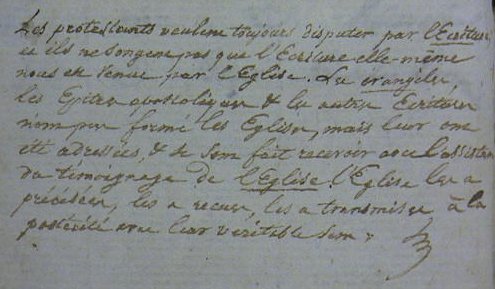 Les protestants veulent toujours disputer par l'Ecriture
et ils ne songent pas que l'Ecriture elle-même
nous est venue par l'Eglise. Les evangiles
les Epitres apostoliques & les autres Ecritures
n'ont pas formé les Eglises, mais leur ont
été adressées, & se sont fait recevoir avec l'assistance
du témoignage de l'Eglise. l'Eglise les a
précédées, les a recues, les a transmises à la
postérité avec leur véritable sens.